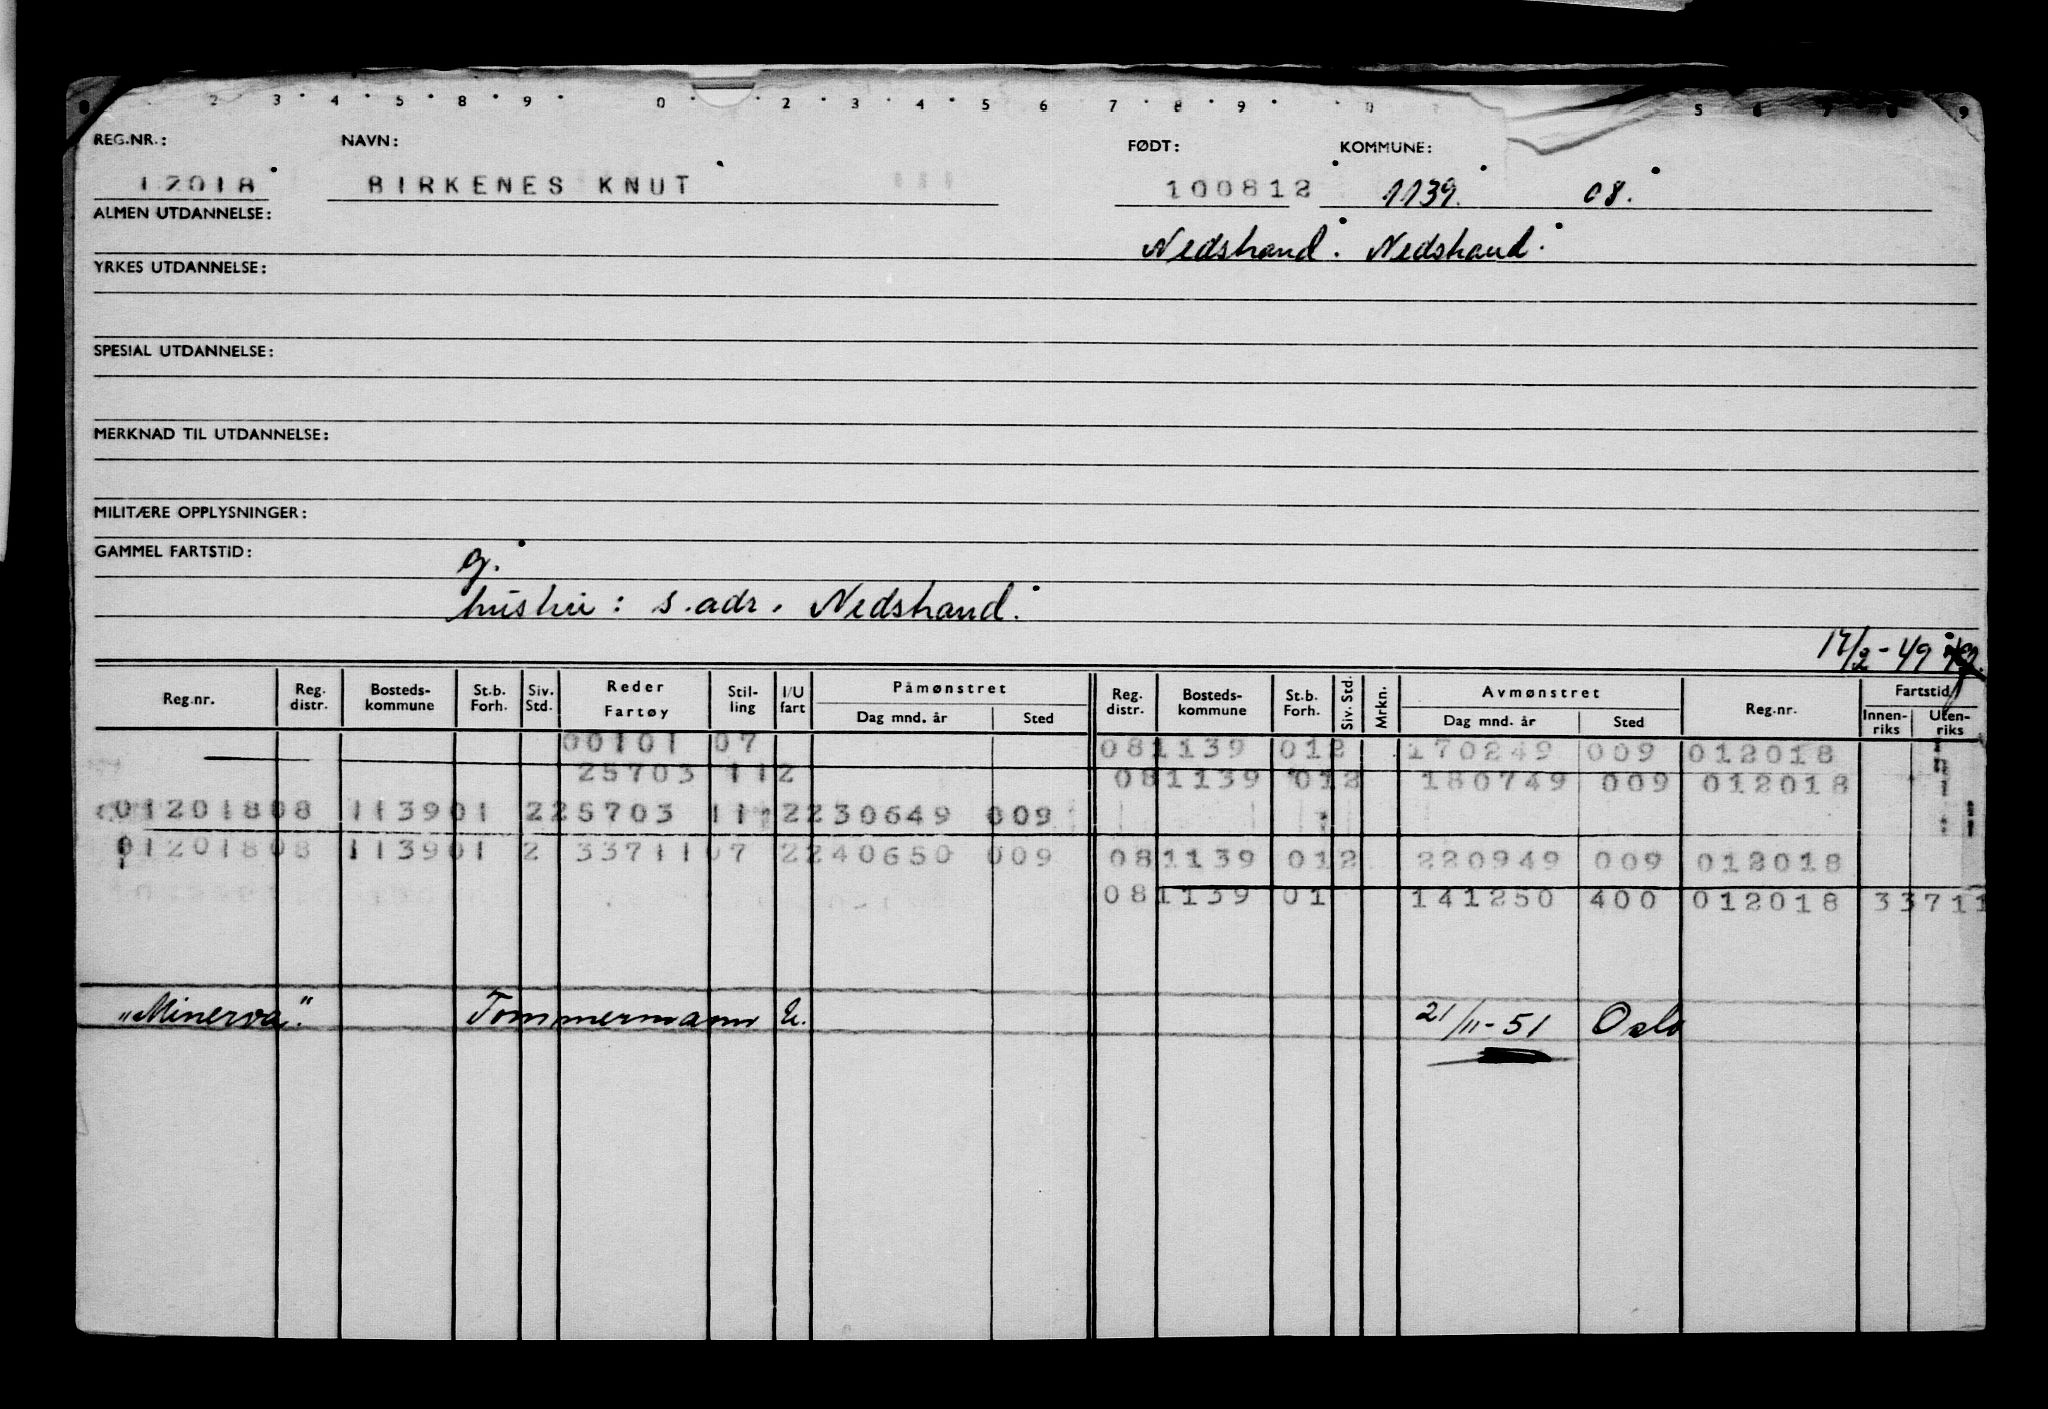 2 3 4 5 8 9 0 2 3 4 5 6 7 8 9 0 5 6 7 8 9
REG.NR.: NAVN: FØDT: KOMMUNE:
12018 BIRKENES KNUT 100812 1139. 08.
ALMEN UTDANNELSE:
Nedstrand. Nedstrand.
YRKES UTDANNELSE:
SPESIAL UTDANNELSE:
MERKNAD TIL UTDANNELSE:
MILITÆRE OPPLYSNINGER:
GAMMEL FARTSTID: g.
hustru: s. adr. Nedstrand.
17/2-49
Reg.nr. Reg. distr. Bosteds-kommune St.b. Forh. Siv. Std. Reder Fartøy Stil-ling I/U fart Påmønstret Dag mnd. år Sted Reg. distr. Bosteds-kommune St.b. Forh. Siv. Std. Mrkn. Avmønstret Dag mnd. år Sted Reg.nr. Fartstid Innen-riks Uten-riks
00101 07 081139 012 170249 009 012018
25703 112 081139 012 180749 009 012018
01201808 113901 225703 11 2230649 009
01201808 113901 2 3371107 2240650 009 081139 012 220949 009 012018
081139 01 141250 400 012018 33711
"Minerva." Tømmermann U. 21/11-51 Oslo